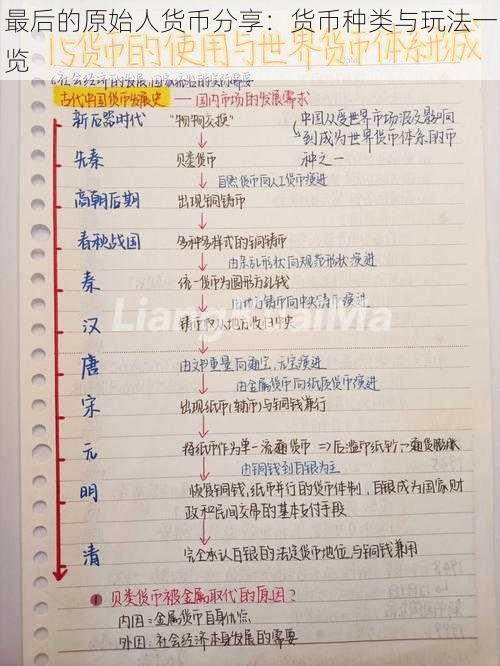 最后的原始人货币分享：货币种类与玩法一
览
15货币的使用与世界货币体系形成
古代中国货币发展史 —— 国内市场的发展需求
新石器时代 "物物交换"
中国从受世界市场混乱影响
到成为世界货币体系的币
种之一
先秦 贝类货币
自然货币向人工货币演进
商朝后期 出现铜铸币
春秋战国 多种多样式的铜铸币
由杂乱形状向规范形状演进
秦 统一货币为圆形方孔钱
由地方铸币向中央铸币演进
汉 铸币权从地方收归中央
唐 由文书重量向通宝,元宝演进
由金属货币向纸质货币演进
宋 出现纸币(辅币)与铜钱兼行
元 将纸币作为单一流通货币 => 后滥印纸钞 → 通货膨胀
由铜钱到白银为主
明 恢复铜钱,纸币并行的货币体制,白银成为国家财
政和民间交易的基本支付手段
清 完全承认白银的法定货币地位,与铜钱兼用
贝类货币被金属取代的原因?
内因:金属货币自身优点
外因:社会经济本身发展的需要